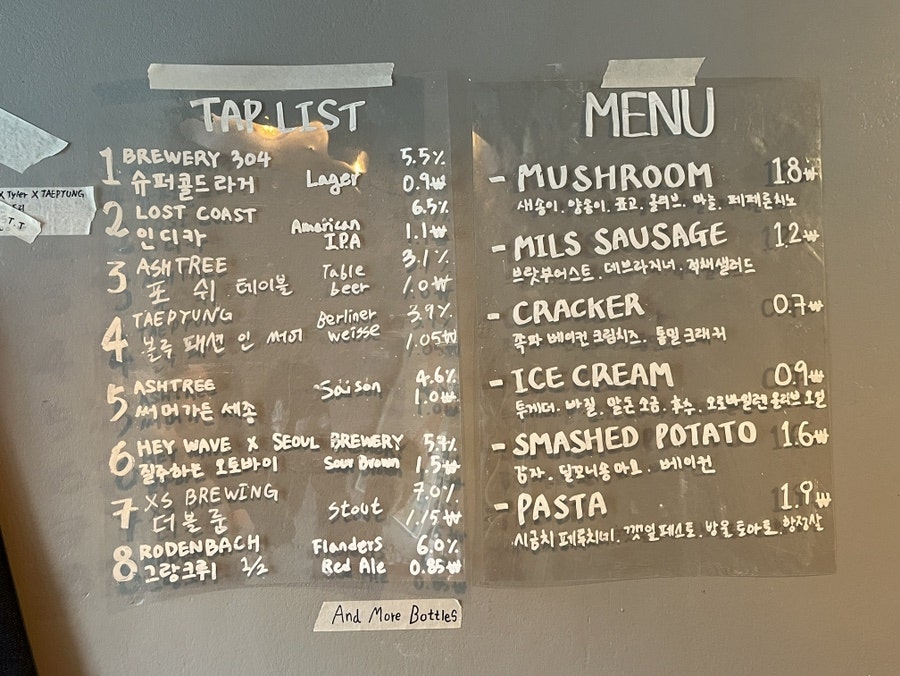 TAP LIST
1 BREWERY 304 5.5%
슈퍼콜드라거 Lager 0.9₩
2 LOST COAST 6.5%
인디카 American IPA 1.1₩
3 ASHTREE Table 3.1%
포 쉬 테이블 beer 1.0₩
4 TAEPYUNG Berliner 3.9%
블루 패션 인 써머 weisse 1.05₩
5 ASHTREE Saison 4.6%
써머가든 세종 1.0₩
6 HEY WAVE X SEOUL BREWERY 5.7%
질주하는 오토바이 Sour Brown 1.5₩
7 XS BREWING 7.0%
더 블룸 Stout 1.15₩
8 RODENBACH Flanders 6.0%
그랑크뤼 1/2 Red Ale 0.85₩
And More Bottles
MENU
- MUSHROOM 1.8₩
새송이. 양송이. 표고. 올리브. 마늘. 페페론치노
- MILS SAUSAGE 1.2₩
브랏부어스트. 데브라지너. 적채샐러드
- CRACKER 0.7₩
쪽파 베이컨 크림치즈. 통밀 크래커
- ICE CREAM 0.9₩
투게더. 바질. 말돈 소금. 후추. 올리브 오일
- SMASHED POTATO 1.6₩
감자. 베이컨
- PASTA 1.9₩
시금치 페투치네. 깻잎페스토. 방울 토마토. 항정살
X Tyler X TAEPYUNG
T.T